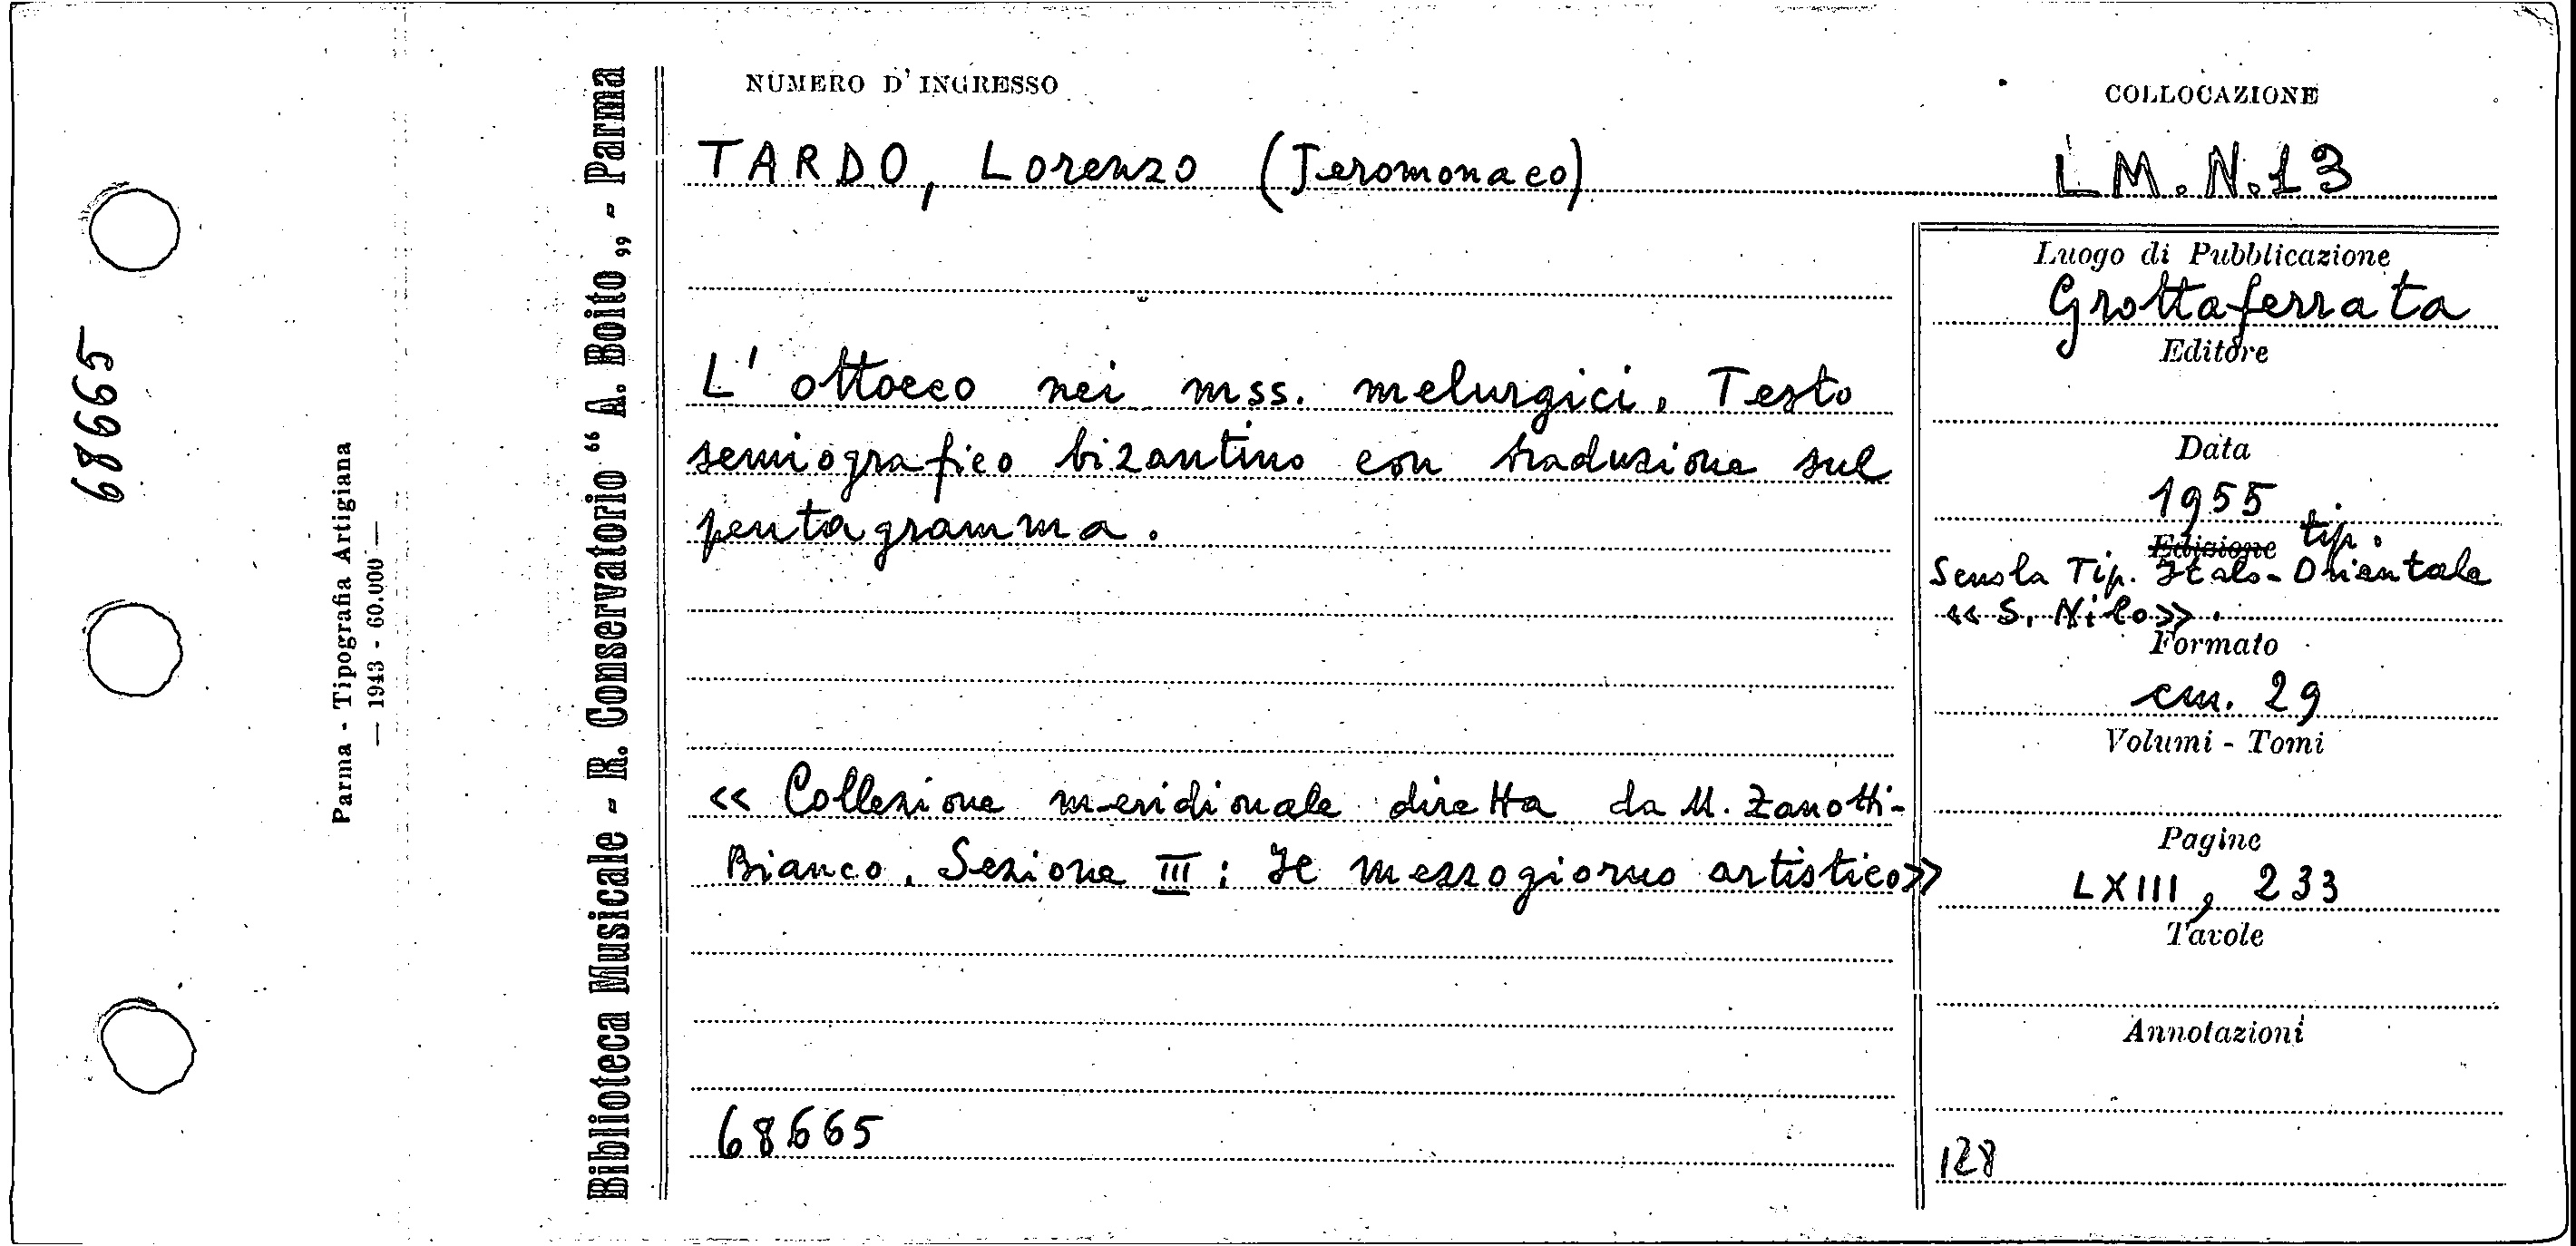 NUMERO D'INGRESSO
COLLOCAZIONE
TARDO, Lorenzo (Jeromonaco)
LM.N.13
L' ottoeco nei mss. melurgici. Testo
semiografico bizantino con traduzione sul
pentagramma.
« Collezione meridionale diretta da U. Zanotti-
Bianco. Sezione III: Il mezzogiorno artistico»
68665
Luogo di Pubblicazione
Grottaferrata
Editore
Data
1955
Edizione tip.
Scuola Tip. Italo-Orientale
«S. Nilo».
Formato
cm. 29
Volumi - Tomi
Pagine
LXIII, 233
Tavole
Annotazioni
128
Biblioteca Musicale - R. Conservatorio “ A. Boito „ - Parma
Parma - Tipografia Artigiana
— 1943 - 60.000 —
68665